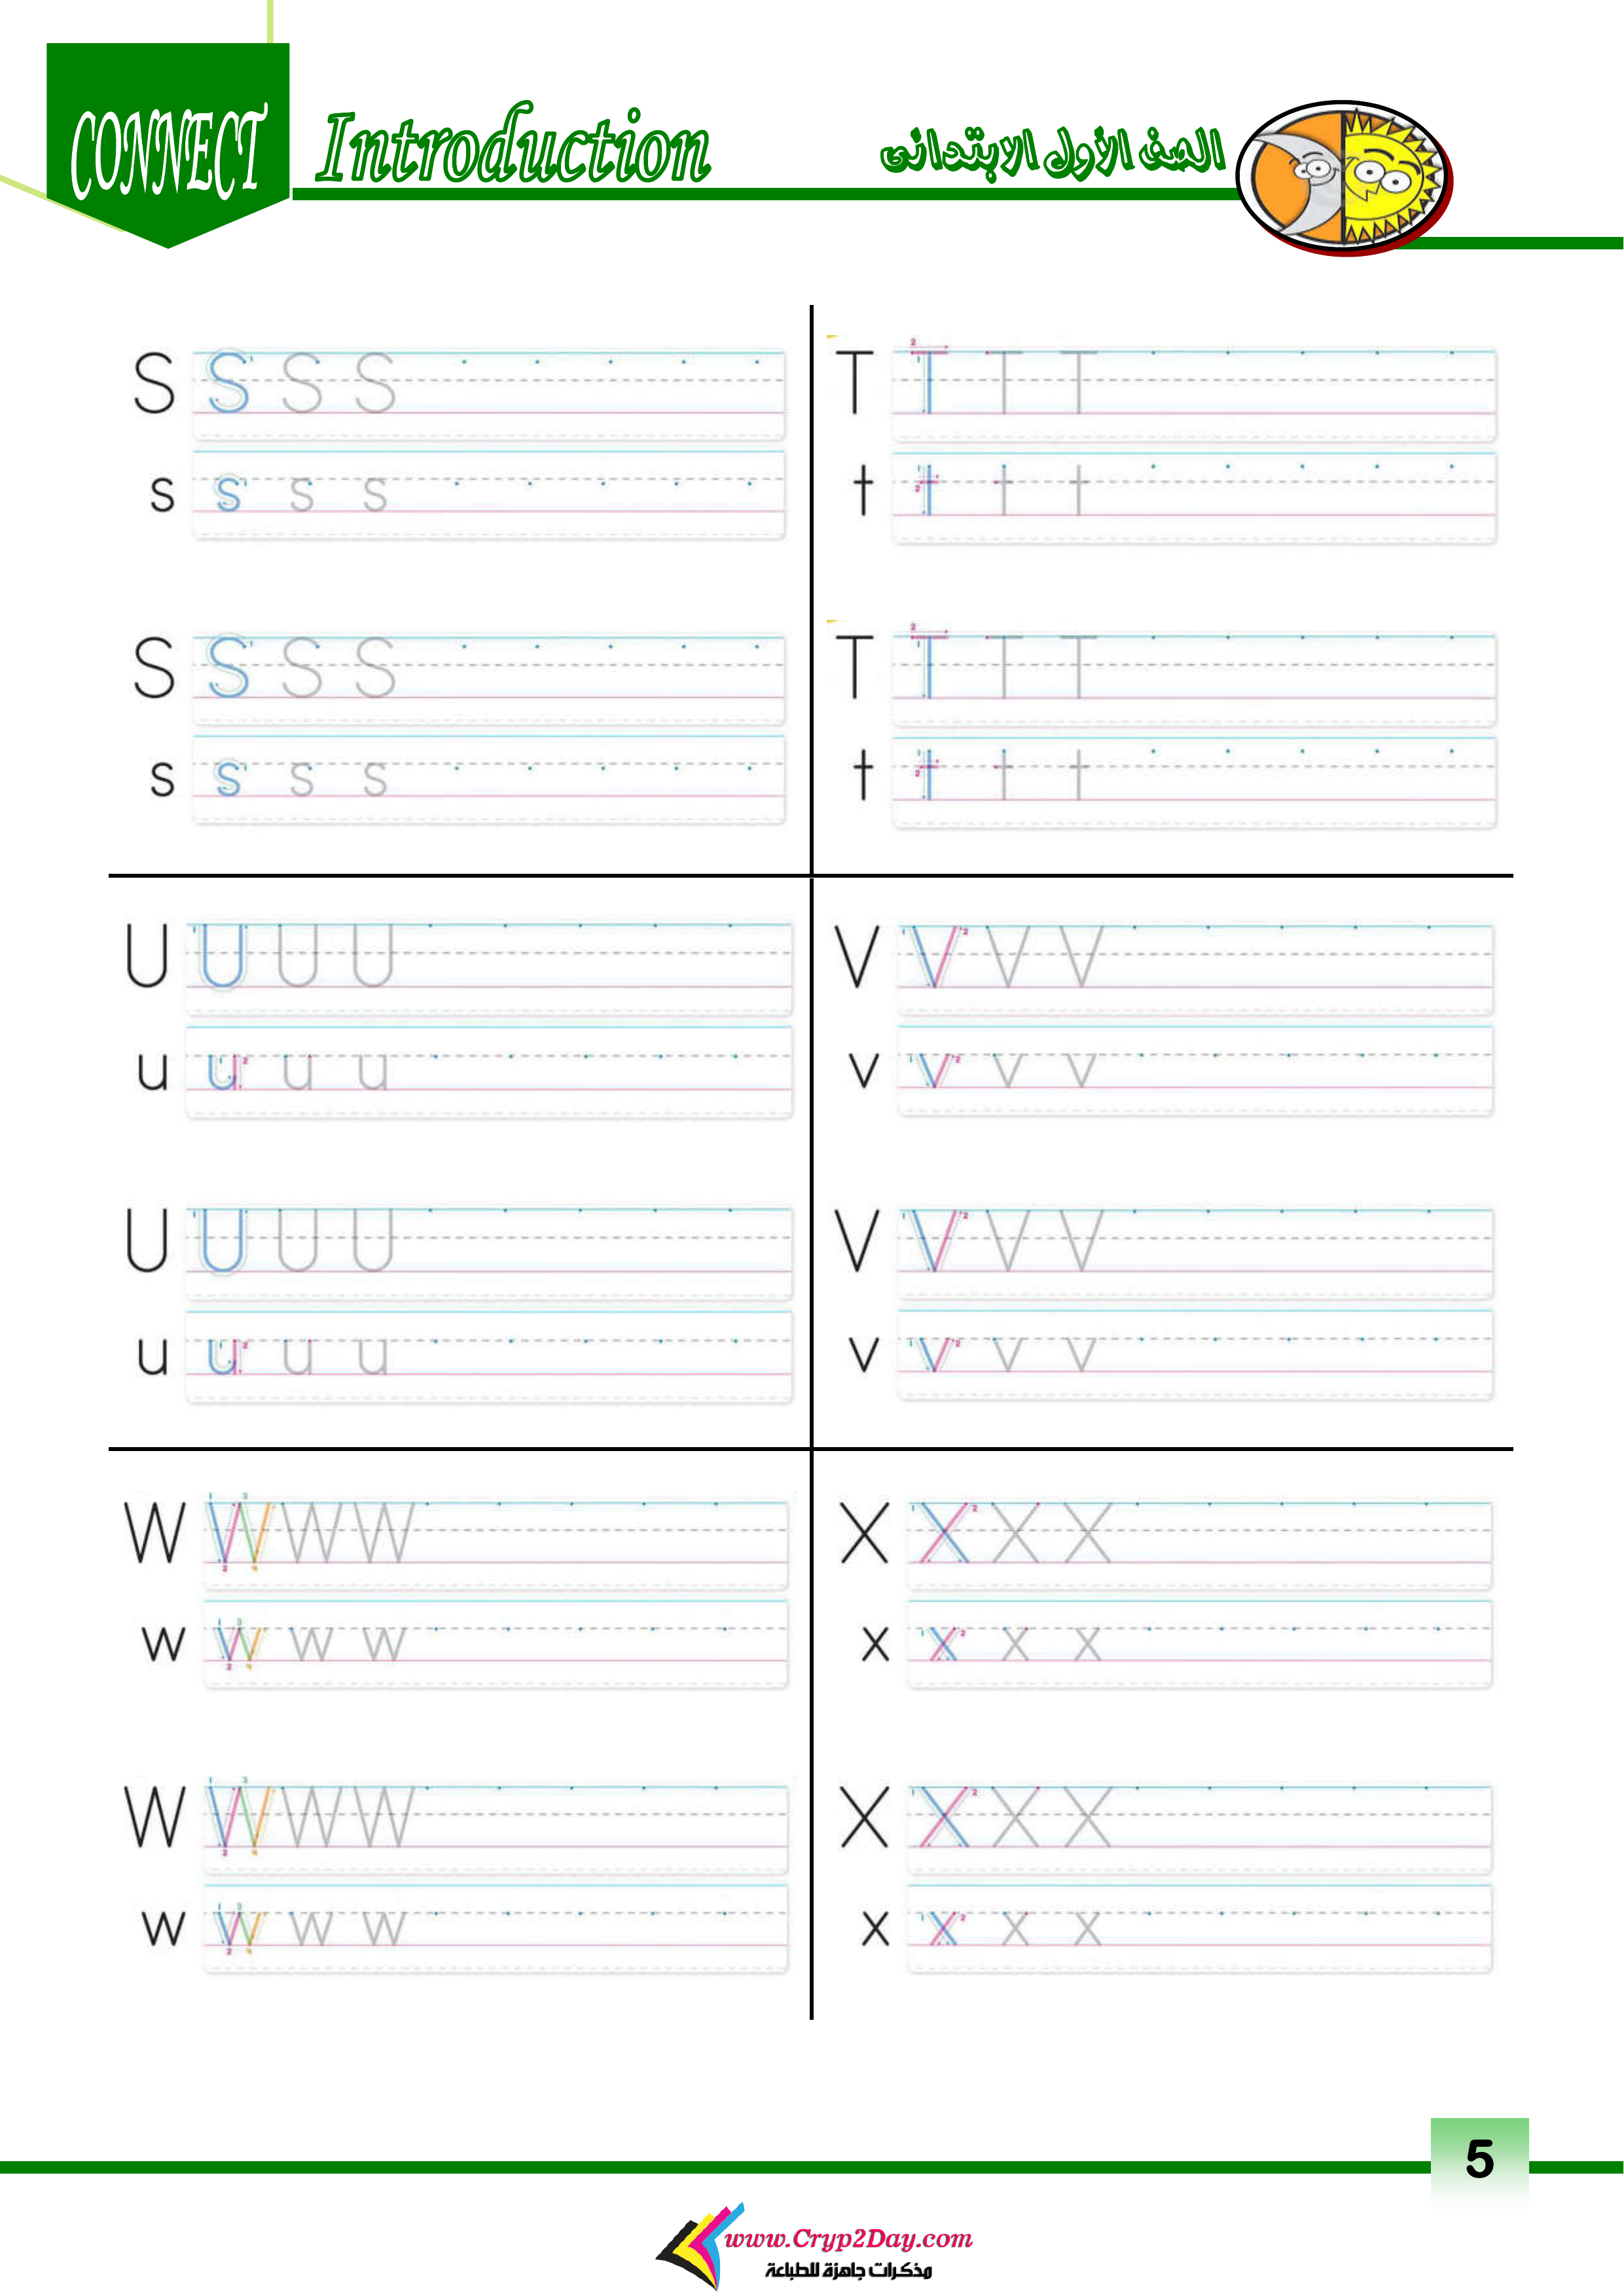 CONNECT Introduction الصف الأول الابتدائى
S S S S
s s s s
S S S S
s s s s
T T T T
t t t t
T T T T
t t t t
U U U U
u u u u
U U U U
u u u u
V V V V
v v v v
V V V V
v v v v
W W W W
w w w w
W W W W
w w w w
X X X X
x x x x
X X X X
x x x x
5
www.Cryp2Day.com
مذكرات جاهزة للطباعة